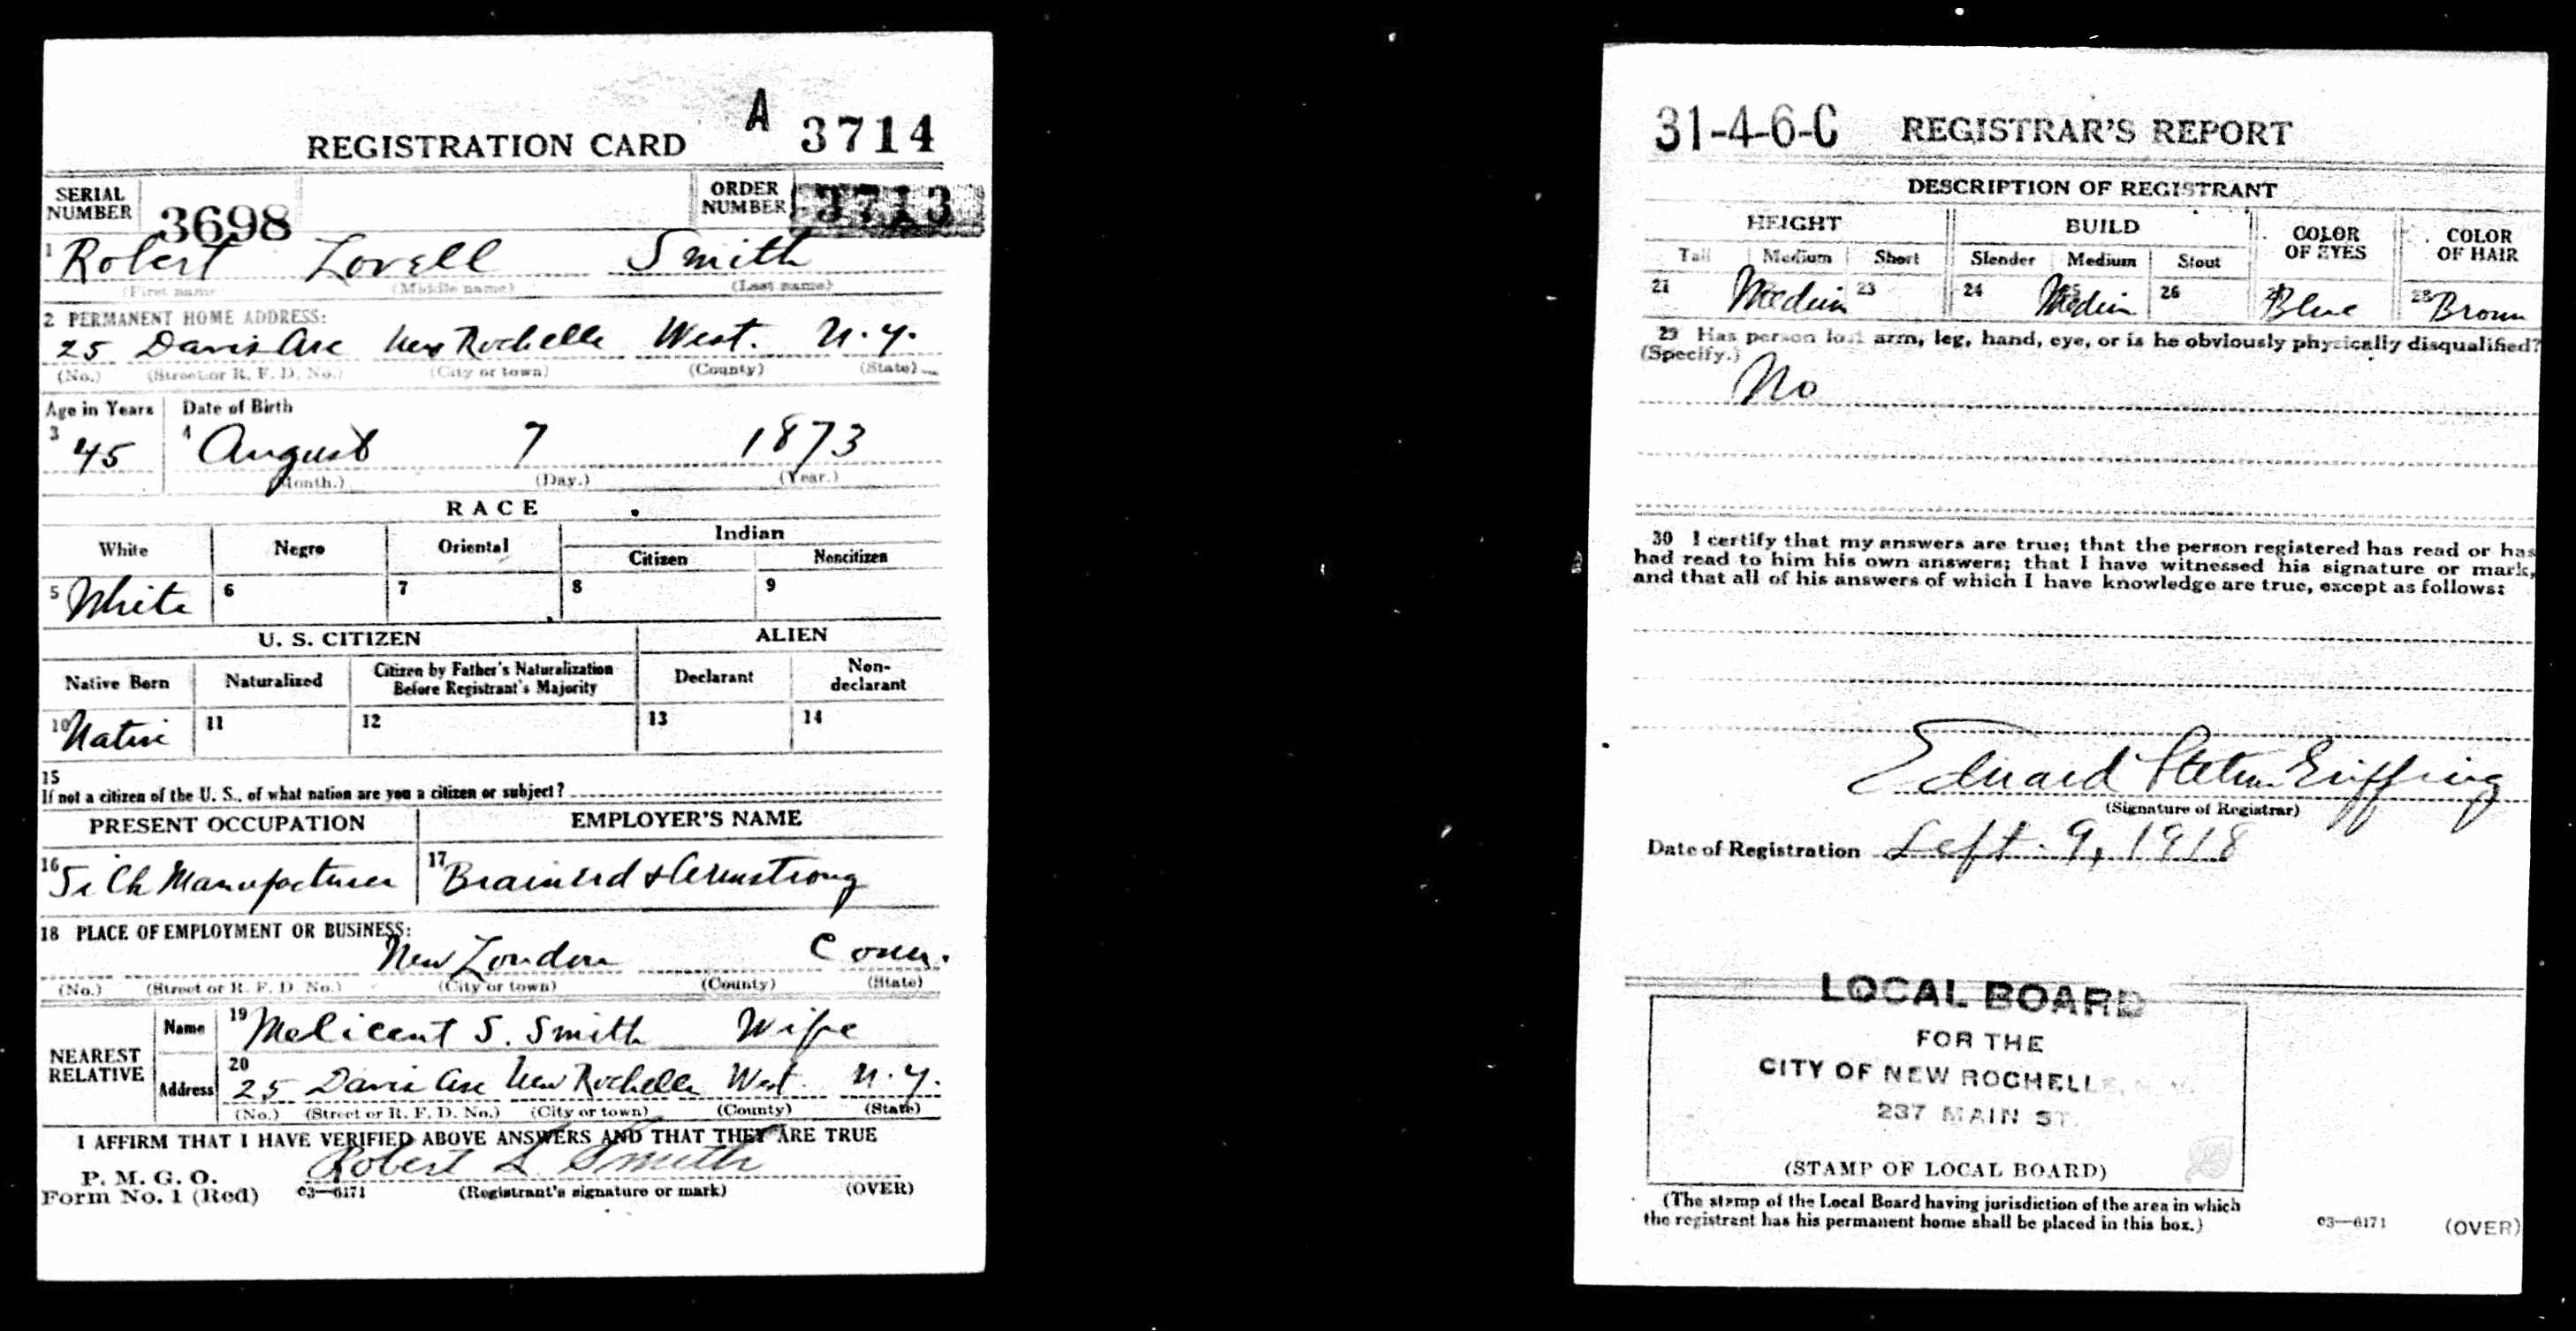 A 3714
REGISTRATION CARD
SERIAL NUMBER 3698 ORDER NUMBER 3713
1 Robert Lovell Smith
(First name) (Middle name) (Last name)
2 PERMANENT HOME ADDRESS:
25 Davis Ave New Rochelle West. N.Y.
(No.) (Street or R. F. D. No.) (City or town) (County) (State)
Age in Years Date of Birth
3 45 4 August 7 1873
(Month.) (Day.) (Year.)
RACE
White Negro Oriental Indian
Citizen Noncitizen
5 White 6 7 8 9
U. S. CITIZEN ALIEN
Native Born Naturalized Citizen by Father's Naturalization Before Registrant's Majority Declarant Non-declarant
10 Native 11 12 13 14
15
If not a citizen of the U. S., of what nation are you a citizen or subject?
PRESENT OCCUPATION EMPLOYER'S NAME
16 Silk Manufacturer 17 Brainerd & Armstrong
18 PLACE OF EMPLOYMENT OR BUSINESS:
New London Conn.
(No.) (Street or R. F. D. No.) (City or town) (County) (State)
NEAREST RELATIVE
Name 19 Melicent S. Smith Wife
Address 20 25 Davis Ave New Rochelle West. N.Y.
(No.) (Street or R. F. D. No.) (City or town) (County) (State)
I AFFIRM THAT I HAVE VERIFIED ABOVE ANSWERS AND THAT THEY ARE TRUE
P. M. G. O.
Form No. 1 (Red) 03—6171 Robert L Smith
(Registrant's signature or mark) (OVER)
31-4-6-C REGISTRAR'S REPORT
DESCRIPTION OF REGISTRANT
HEIGHT BUILD COLOR OF EYES COLOR OF HAIR
Tall Medium Short Slender Medium Stout
21 Medium 23 24 Medium 26 27 Blue 28 Brown
29 Has person lost arm, leg, hand, eye, or is he obviously physically disqualified?
(Specify.)
No
30 I certify that my answers are true; that the person registered has read or has
had read to him his own answers; that I have witnessed his signature or mark,
and that all of his answers of which I have knowledge are true, except as follows:
Edward Griffing
(Signature of Registrar)
Date of Registration Sept. 9, 1918
LOCAL BOARD
FOR THE
CITY OF NEW ROCHELLE, N.Y.
237 MAIN ST.
(STAMP OF LOCAL BOARD)
(The stamp of the Local Board having jurisdiction of the area in which
the registrant has his permanent home shall be placed in this box.)
03—6171 (OVER)